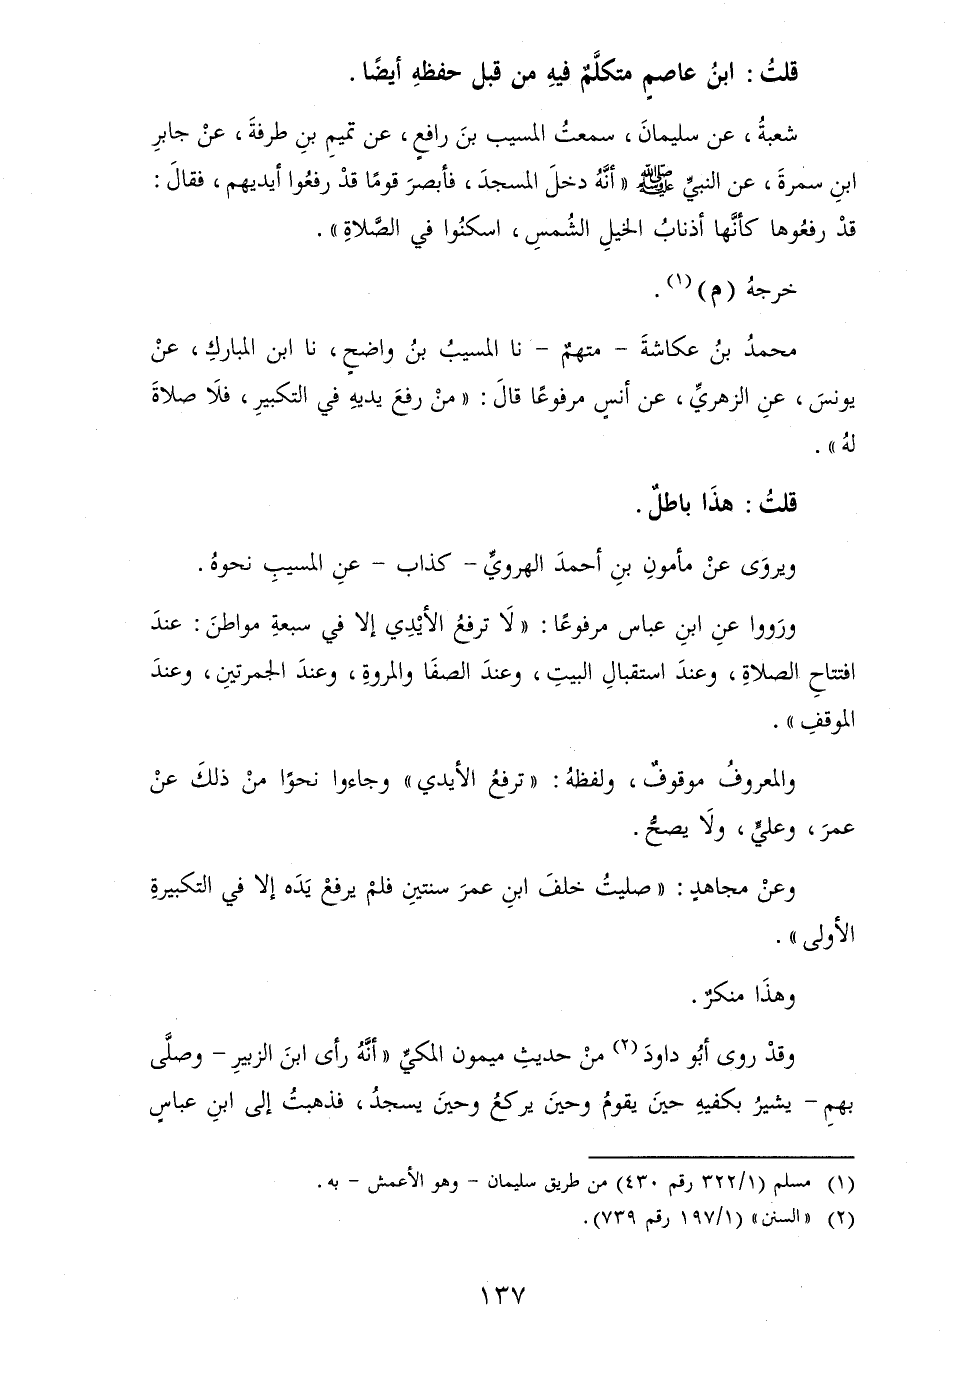 قلتُ : ابنُ عاصمٍ متكلَّمٌ فيهِ من قبل حفظهِ أيضًا .
شعبةُ ، عن سليمانَ ، سمعتُ المسيب بنَ رافعٍ ، عن تميمِ بنِ طرفةَ ، عنْ جابرِ
ابنِ سمرةَ ، عن النبيِّ ﷺ « أنَّهُ دخلَ المسجدَ ، فأبصرَ قومًا قدْ رفعُوا أيديهم ، فقالَ :
قدْ رفعُوها كأنَّها أذنابُ الخيلِ الشُمسِ ، اسكنُوا في الصَّلاةِ » .
خرجهُ (م)(١) .
محمدُ بنُ عكاشةَ – متهمٌ – نا المسيبُ بنُ واضحٍ ، نا ابن المباركِ ، عنْ
يونسَ ، عنِ الزهريِّ ، عن أنسٍ مرفوعًا قالَ : « منْ رفعَ يديهِ في التكبيرِ ، فلَا صلاةَ
لهُ » .
قلتُ : هذَا باطلٌ .
ويروَى عنْ مأمونِ بنِ أحمدَ الهرويِّ – كذاب – عنِ المسيبِ نحوهُ .
ورَووا عنِ ابنِ عباس مرفوعًا : « لَا ترفعُ الأيْدِي إلا في سبعةِ مواطنَ : عندَ
افتتاحِ الصلاةِ ، وعندَ استقبالِ البيتِ ، وعندَ الصفَا والمروةِ ، وعندَ الجمرتينِ ، وعندَ
الموقفِ » .
والمعروفُ موقوفٌ ، ولفظهُ : « ترفعُ الأيدي » وجاءوا نحوًا منْ ذلكَ عنْ
عمرَ ، وعليٍّ ، ولَا يصحُّ .
وعنْ مجاهدٍ : « صليتُ خلفَ ابنِ عمرَ سنتينِ فلمْ يرفعْ يَدَه إلا في التكبيرةِ
الأولى » .
وهذَا منكرٌ .
وقدْ روى أبُو داودَ(٢) منْ حديثِ ميمون المكيِّ « أنَّهُ رأى ابنَ الزبيرِ – وصلَّى
بهمِ – يشيرُ بكفيهِ حينَ يقومُ وحينَ يركعُ وحينَ يسجدُ ، فذهبتُ إلى ابنِ عباسٍ
(١) مسلم (٣٢٢/١ رقم ٤٣٠) من طريق سليمان – وهو الأعمش – به .
(٢) «السنن» (١٩٧/١ رقم ٧٣٩).
١٣٧